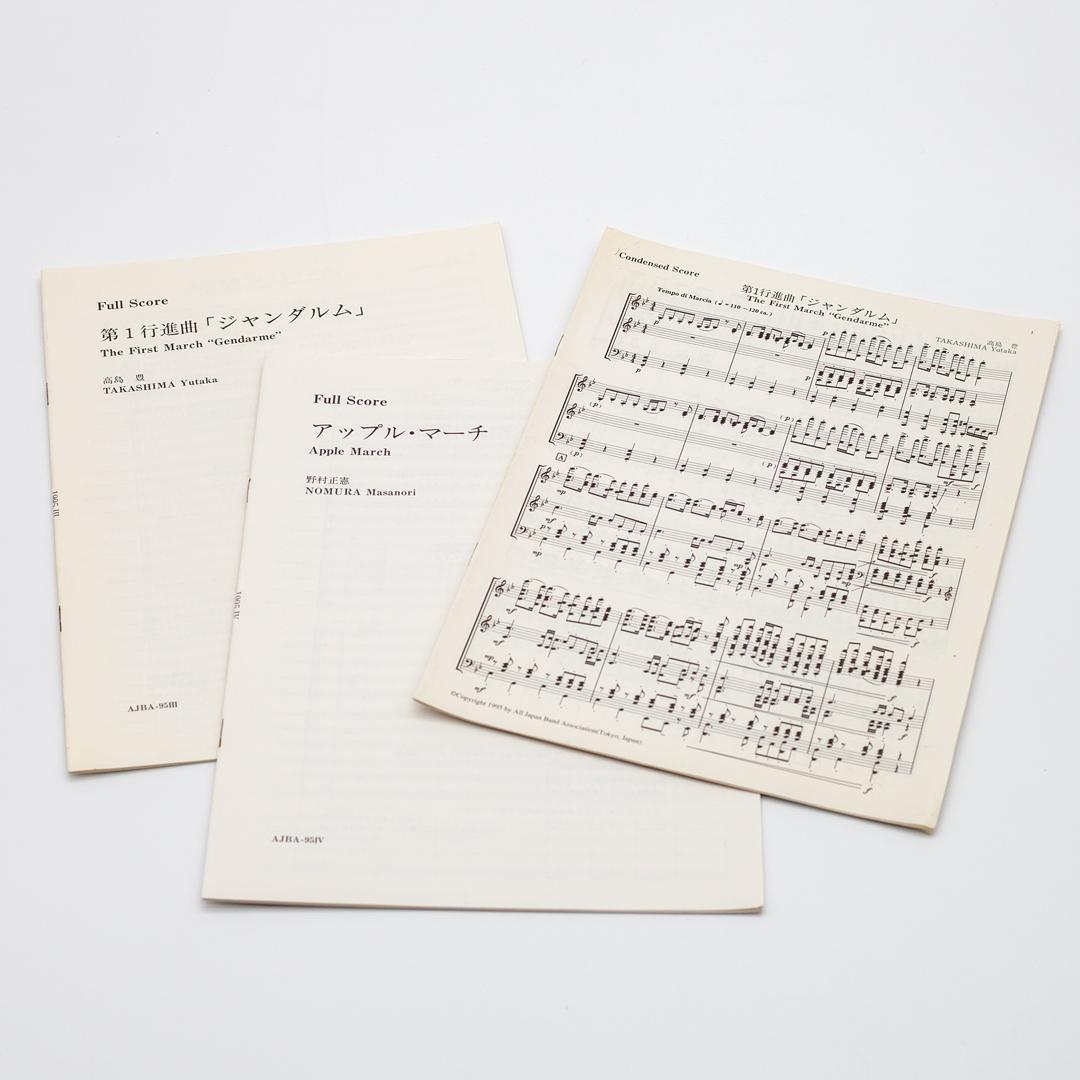 Full Score
第1行進曲「ジャンダルム」
The First March “Gendarme”
高島 豊
TAKASHIMA Yutaka
1995 III
AJBA-95III
Full Score
アップル・マーチ
Apple March
野村正憲
NOMURA Masanori
1995 IV
AJBA-95IV
Condensed Score
1
第1行進曲「ジャンダルム」
The First March “Gendarme”
高島 豊
TAKASHIMA Yutaka
Tempo di Marcia (♩=110~120 ca.)
p
p
p
(p)
(p)
(p)
(p)
mf
f
A
mf
p
mp
mp
f
mf
mf
mf
f
f
©Copyright 1995 by All Japan Band Association(Tokyo, Japan)